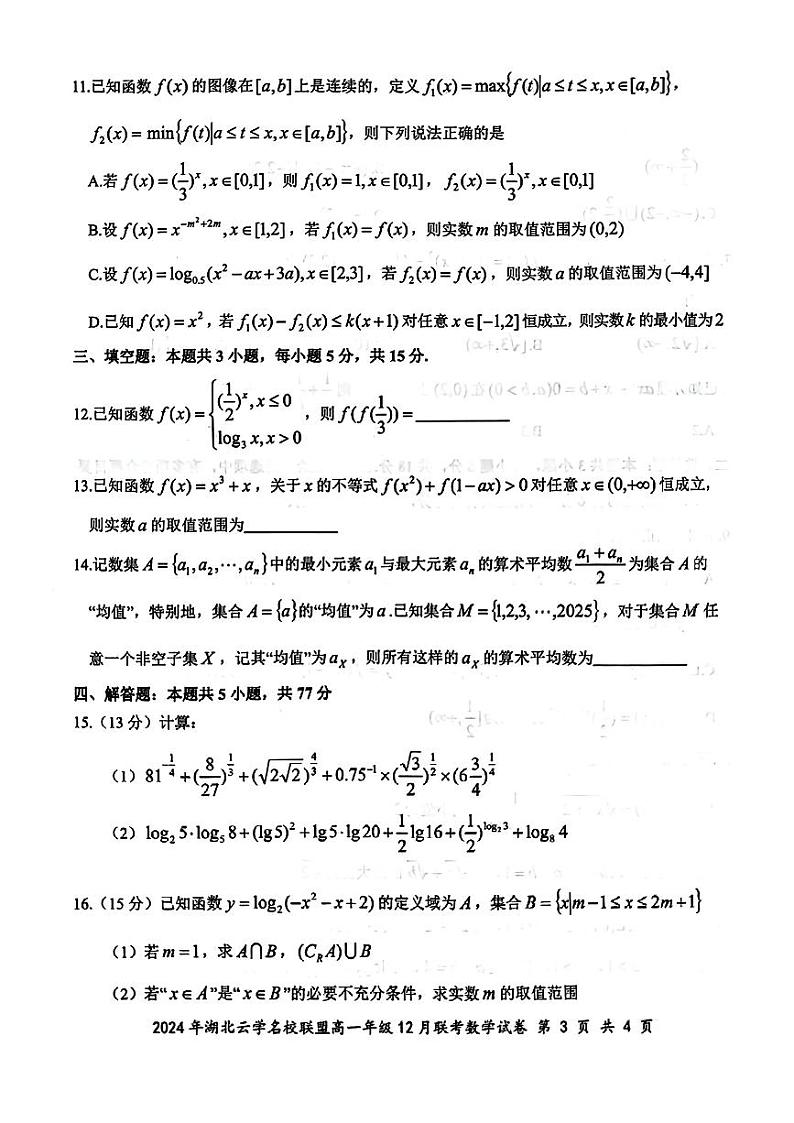 11.已知函数 f(x) 的图像在[a,b]上是连续的，定义 f₁(x) = max{f(t)|a ≤ t ≤ x, x∈[a,b]}，
f₂(x) = min{f(t)|a ≤ t ≤ x, x∈[a,b]}，则下列说法正确的是
A.若 f(x) = (1/3)^x, x∈[0,1]，则 f₁(x) = 1, x∈[0,1]， f₂(x) = (1/3)^x, x∈[0,1]
B.设 f(x) = x^(-m²+2m), x∈[1,2]，若 f₁(x) = f(x)，则实数 m 的取值范围为 (0,2)
C.设 f(x) = log₀.₅(x² − ax + 3a), x∈[2,3]，若 f₂(x) = f(x)，则实数 a 的取值范围为 (−4,4]
D.已知 f(x) = x²，若 f₁(x) − f₂(x) ≤ k(x+1) 对任意 x∈[−1,2] 恒成立，则实数 k 的最小值为 2
三、填空题：本题共 3 小题，每小题 5 分，共 15 分.
12.已知函数 f(x) = {(1/2)^x, x ≤ 0; log₃ x, x > 0 ，则 f(f(1/3)) = ____________
13.已知函数 f(x) = x³ + x，关于 x 的不等式 f(x²) + f(1 − ax) > 0 对任意 x∈(0,+∞) 恒成立，
则实数 a 的取值范围为____________
14.记数集 A = {a₁, a₂, ⋯, aₙ} 中的最小元素 a₁ 与最大元素 aₙ 的算术平均数 (a₁ + aₙ)/2 为集合 A 的
“均值”，特别地，集合 A = {a} 的“均值”为 a .已知集合 M = {1,2,3, ⋯, 2025}，对于集合 M 任
意一个非空子集 X，记其“均值”为 a_X，则所有这样的 a_X 的算术平均数为____________
四、解答题：本题共 5 小题，共 77 分
15.（13 分）计算：
（1）81^(-1/4) + (8/27)^(1/3) + (√(2√2))^(4/3) + 0.75⁻¹ × (√3/2)^(1/2) × (6 3/4)^(1/4)
（2）log₂ 5 · log₅ 8 + (lg5)² + lg5 · lg20 + 1/2 lg16 + (1/2)^(log₂ 3) + log₈ 4
16.（15 分）已知函数 y = log₂(−x² − x + 2) 的定义域为 A，集合 B = {x|m − 1 ≤ x ≤ 2m + 1}
（1）若 m = 1，求 A∩B，(C_R A)∪B
（2）若“x∈A”是“x∈B”的必要不充分条件，求实数 m 的取值范围
2024 年湖北云学名校联盟高一年级 12 月联考数学试卷 第 3 页 共 4 页